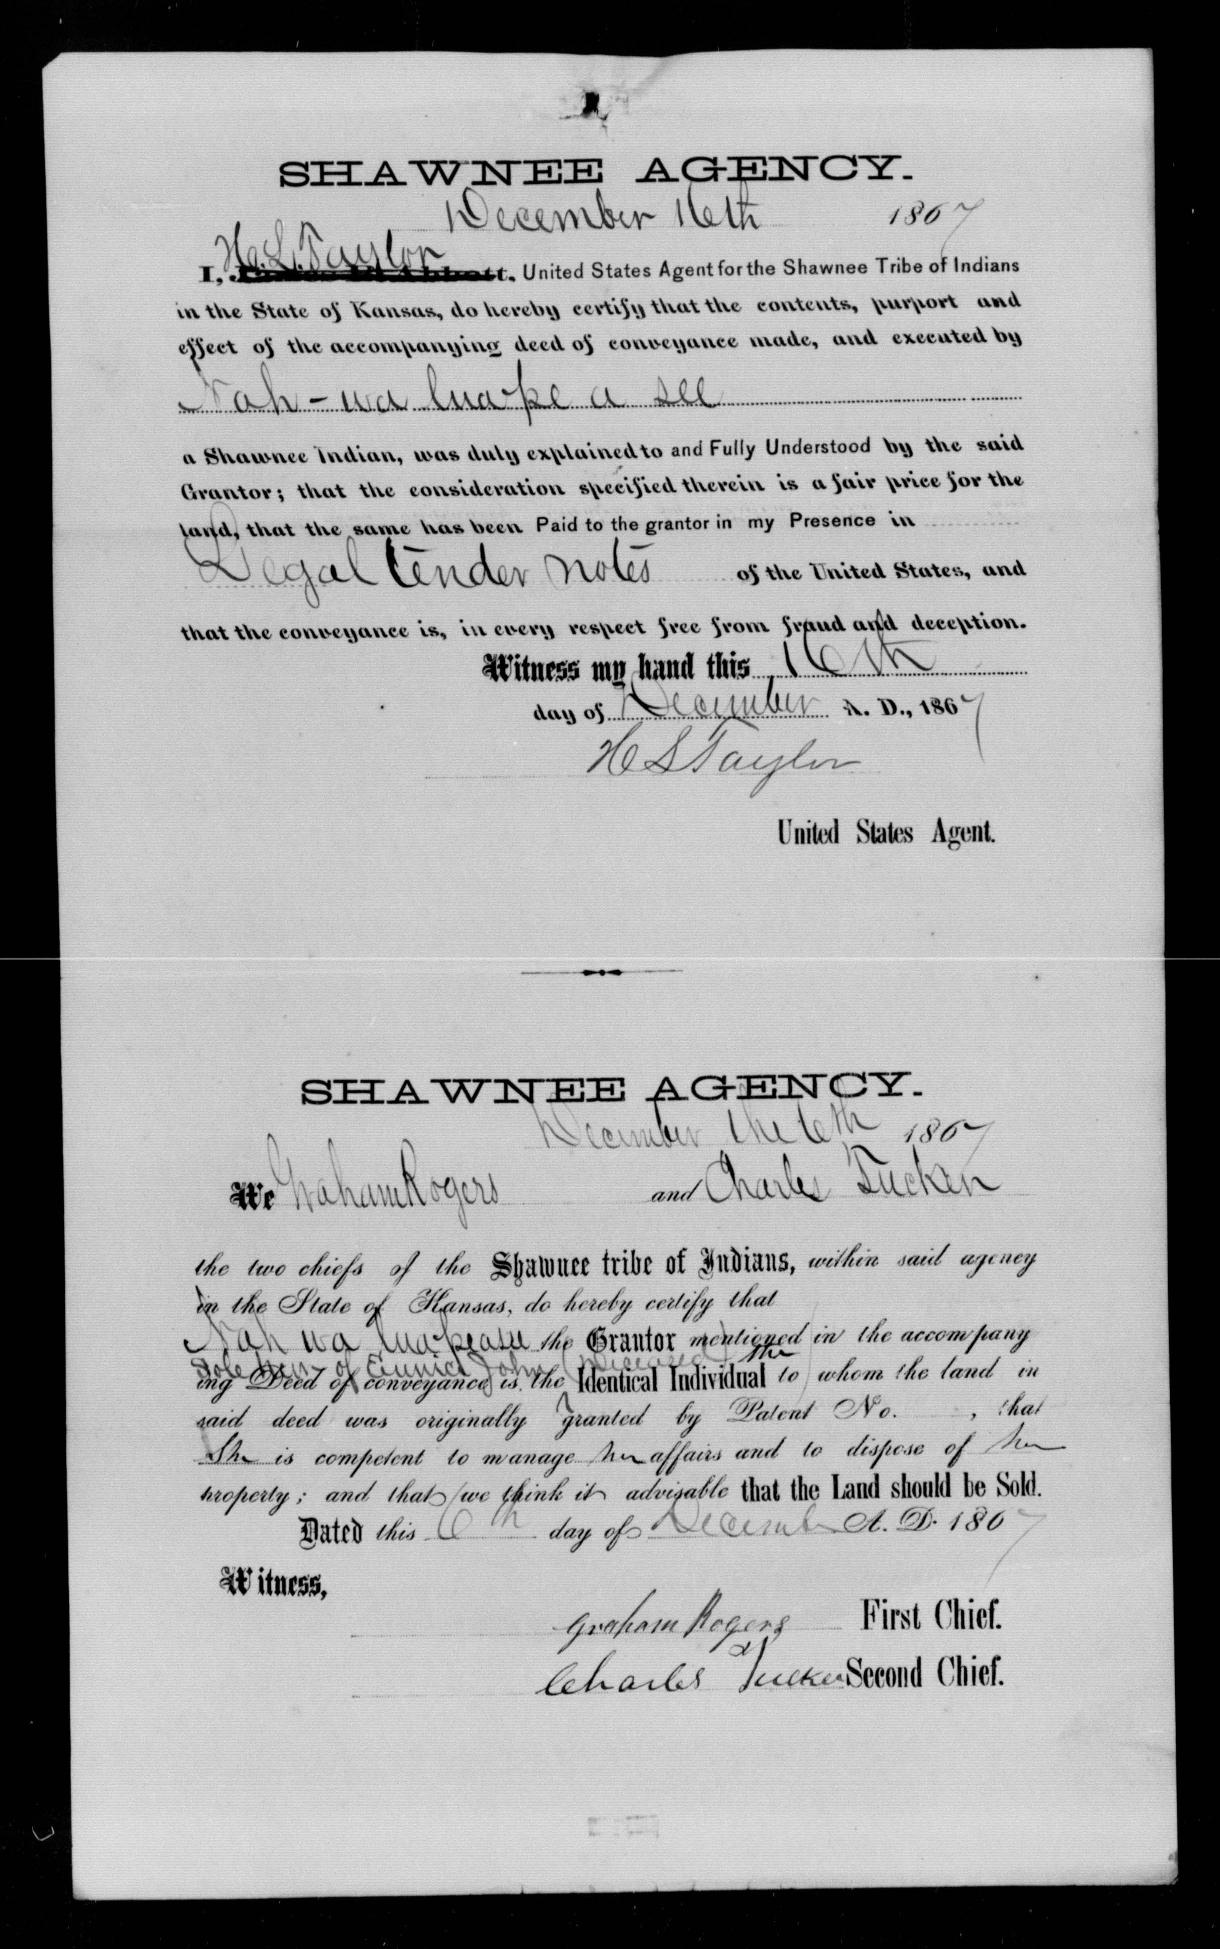 SHAWNEE AGENCY.
December 16th 1867
H. L. Taylor
I, James B. Abbott, United States Agent for the Shawnee Tribe of Indians
in the State of Kansas, do hereby certify that the contents, purport and
effect of the accompanying deed of conveyance made, and executed by
Nah-wa lua pe a see
a Shawnee Indian, was duly explained to and Fully Understood by the said
Grantor; that the consideration specified therein is a fair price for the
land, that the same has been Paid to the grantor in my Presence in
Legal tender notes of the United States, and
that the conveyance is, in every respect free from fraud and deception.
Witness my hand this 16th
day of December A. D., 1867
H L Taylor
United States Agent.
SHAWNEE AGENCY.
December the 6th 1867
We Graham Rogers and Charles Tucker
the two chiefs of the Shawnee tribe of Indians, within said agency
in the State of Kansas, do hereby certify that
Nah wa lua pease the Grantor mentioned in the accompany
sole heir of Eunice John (Deceased) the
ing Deed of conveyance is the Identical Individual to whom the land in
said deed was originally granted by Patent No. , that
She is competent to manage her affairs and to dispose of her
property; and that we think it advisable that the Land should be Sold.
Dated this 6th day of December A. D. 1867
Witness,
Graham Rogers First Chief.
Charles Tucker Second Chief.